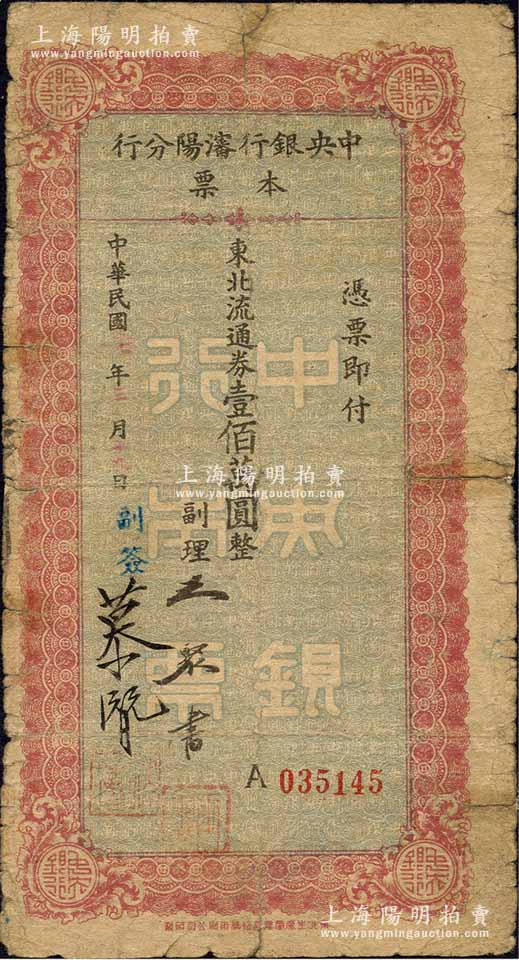 上海陽明拍賣
www.yangmingauction.com
中央銀行瀋陽分行
本票
憑票即付
東北流通券壹佰萬圓整
中華民國 年三月 日
副理 王
書
副簽
慕
中央
銀行
本票
A 035145
上海陽明拍賣
www.yangmingauction.com
上海陽明拍賣
www.yangmingauction.com